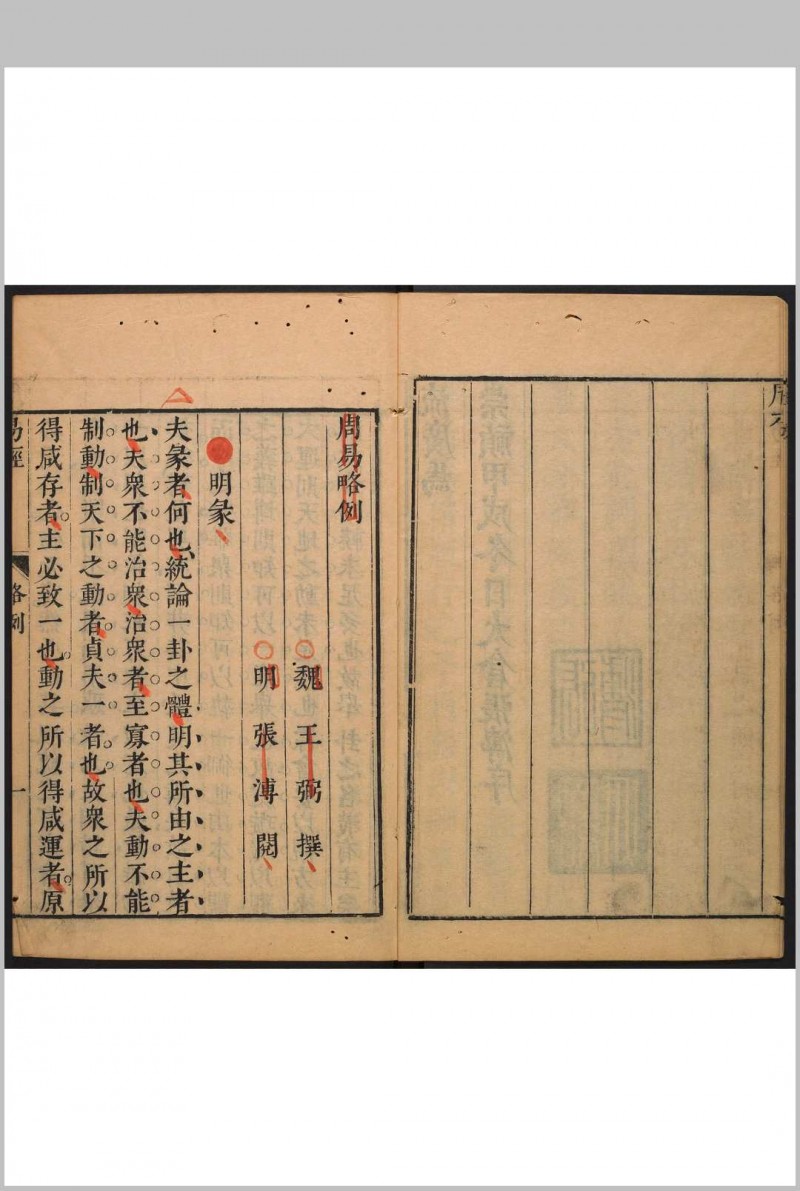 周易略例
魏王弼撰
明張溥閱
明彖
夫彖者何也統論一卦之體明其所由之主者
也夫衆不能治衆治衆者至寡者也夫動不能
制動制天下之動者貞夫一者也故衆之所以
得咸存者主必致一也動之所以得咸運者原
易經 略例 一